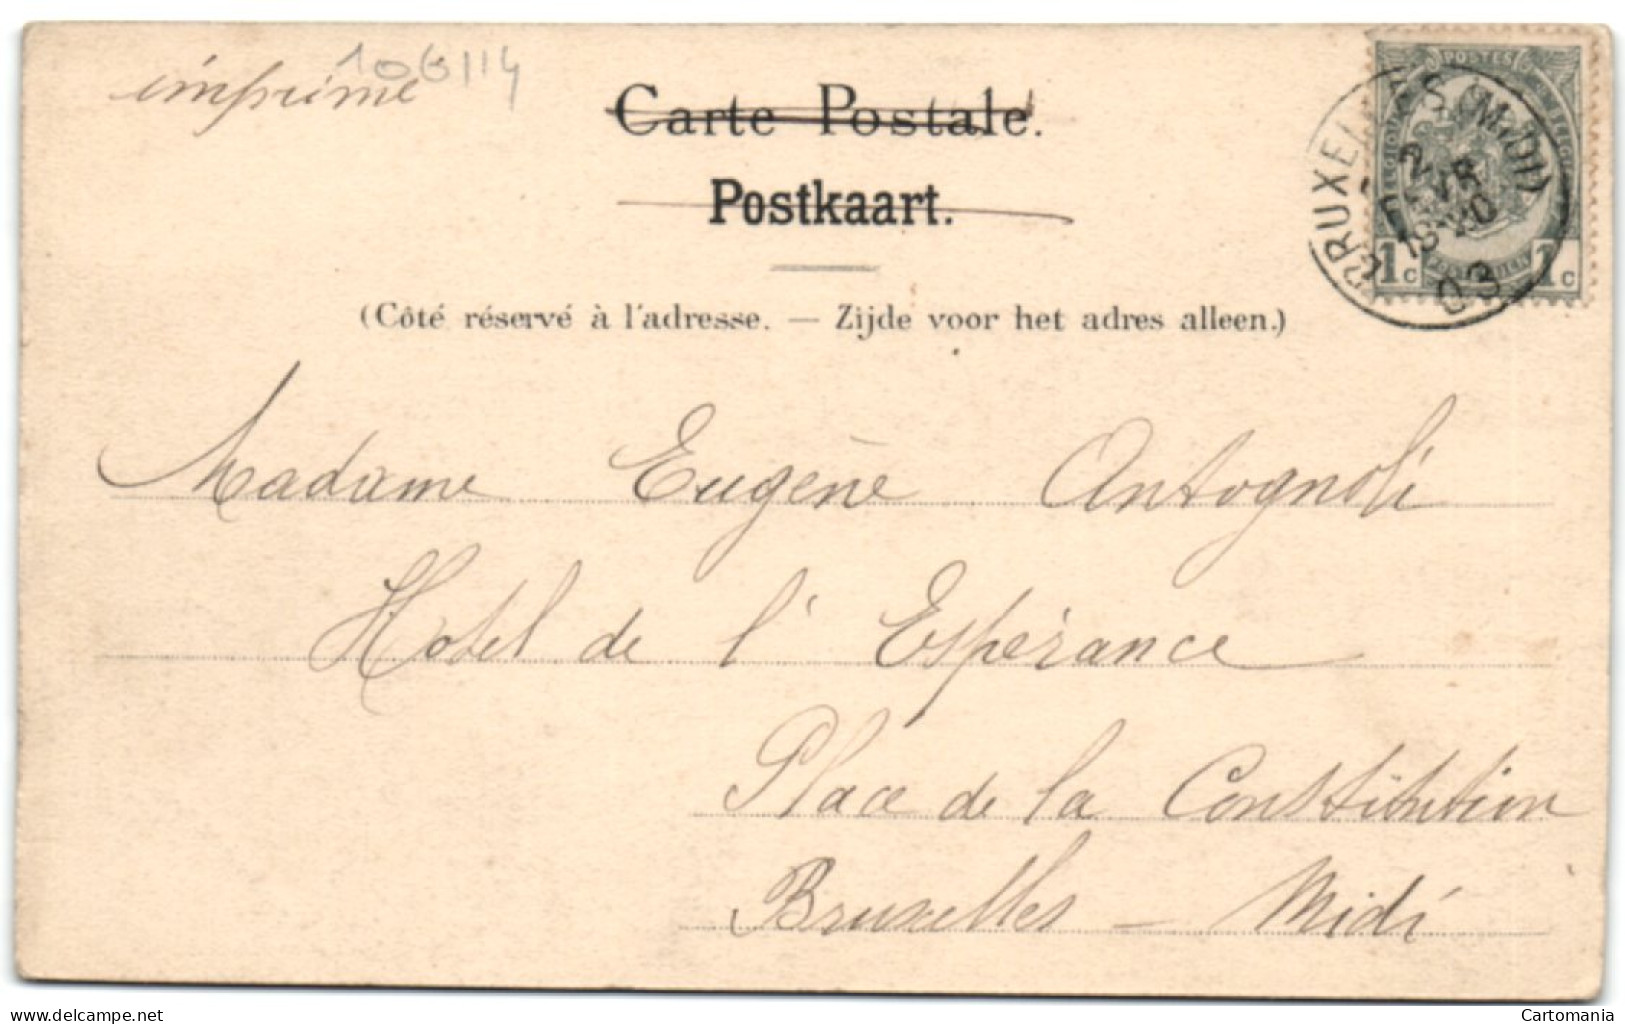 imprimé
106114
Carte Postale.
Postkaart.
(Côté réservé à l'adresse. — Zijde voor het adres alleen.)
POSTES
1c 1c
BRUXELLES (MIDI)
2
18-20
03
Madame Eugène Antognoli
Hotel de l'Espérance
Place de la Constitution
Bruxelles - Midi
www.delcampe.net
Cartomania